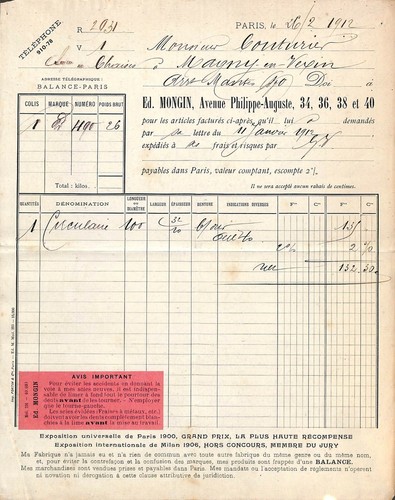 TÉLÉPHONE
910-78
R 2931
V 1
PARIS, le 26/2 1912
Monsieur Couturier
à Magny-en-Vexin
Doi à
ADRESSE TÉLÉGRAPHIQUE :
BALANCE-PARIS
Ed. MONGIN, Avenue Philippe-Auguste, 34, 36, 38 et 40
COLIS MARQUE NUMÉRO POIDS BRUT
1 1190 26
pour les articles facturés ci-après, qu'il lui a demandés
par sa lettre du 11 janvier 1912
expédiés à ses frais et risques par
payables dans Paris, valeur comptant, escompte 2%
Il ne sera accepté aucun rabais de centimes.
Total : kilos.
QUANTITÉS DÉNOMINATION LONGUEUR ou DIAMÈTRE LARGEUR ÉPAISSEUR DENTURE INDICATIONS DIVERSES Fcs Cs Fcs Cs
1 Circulaire 100 32/10 135
2% 2 70
net 132 30
AVIS IMPORTANT
Pour éviter les accidents en donnant la
voie à mes scies neuves, il est indispensable
de limer à fond tout le pourtour des
dents avant de les tourner. - N'employer
que le tourne-gauche.
Les scies évidées (Fraises à métaux, etc.)
doivent avoir les dents complètement blanchies
à la lime avant la mise au travail.
Ed. MONGIN
Exposition universelle de Paris 1900, GRAND PRIX, LA PLUS HAUTE RÉCOMPENSE
Exposition internationale de Milan 1906, HORS CONCOURS, MEMBRE DU JURY
Ma Fabrique n'a jamais eu et n'a rien de commun avec toute autre fabrique du même genre ou du même nom,
et, pour éviter la contrefaçon et la confusion des marques, mes produits sont frappés d'une BALANCE.
Mes marchandises sont vendues prises et payables dans Paris. Mes mandats ou l'acceptation de règlements n'opèrent
ni novation ni dérogation à cette clause attributive de juridiction.